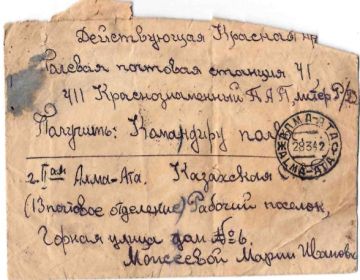 Действующая Красная
Полевая почтовая станция 41,
411 Краснознаменный ПАП, литер
Получить: Командиру полка
АЛМА-АТА
28 3 42
ALMA-ATA
г. Алма-Ата. Казахская
(13 почтовое отделение) Рабочий поселок,
Горная улица дом № 6.
Моисеевой Марии Ивановне